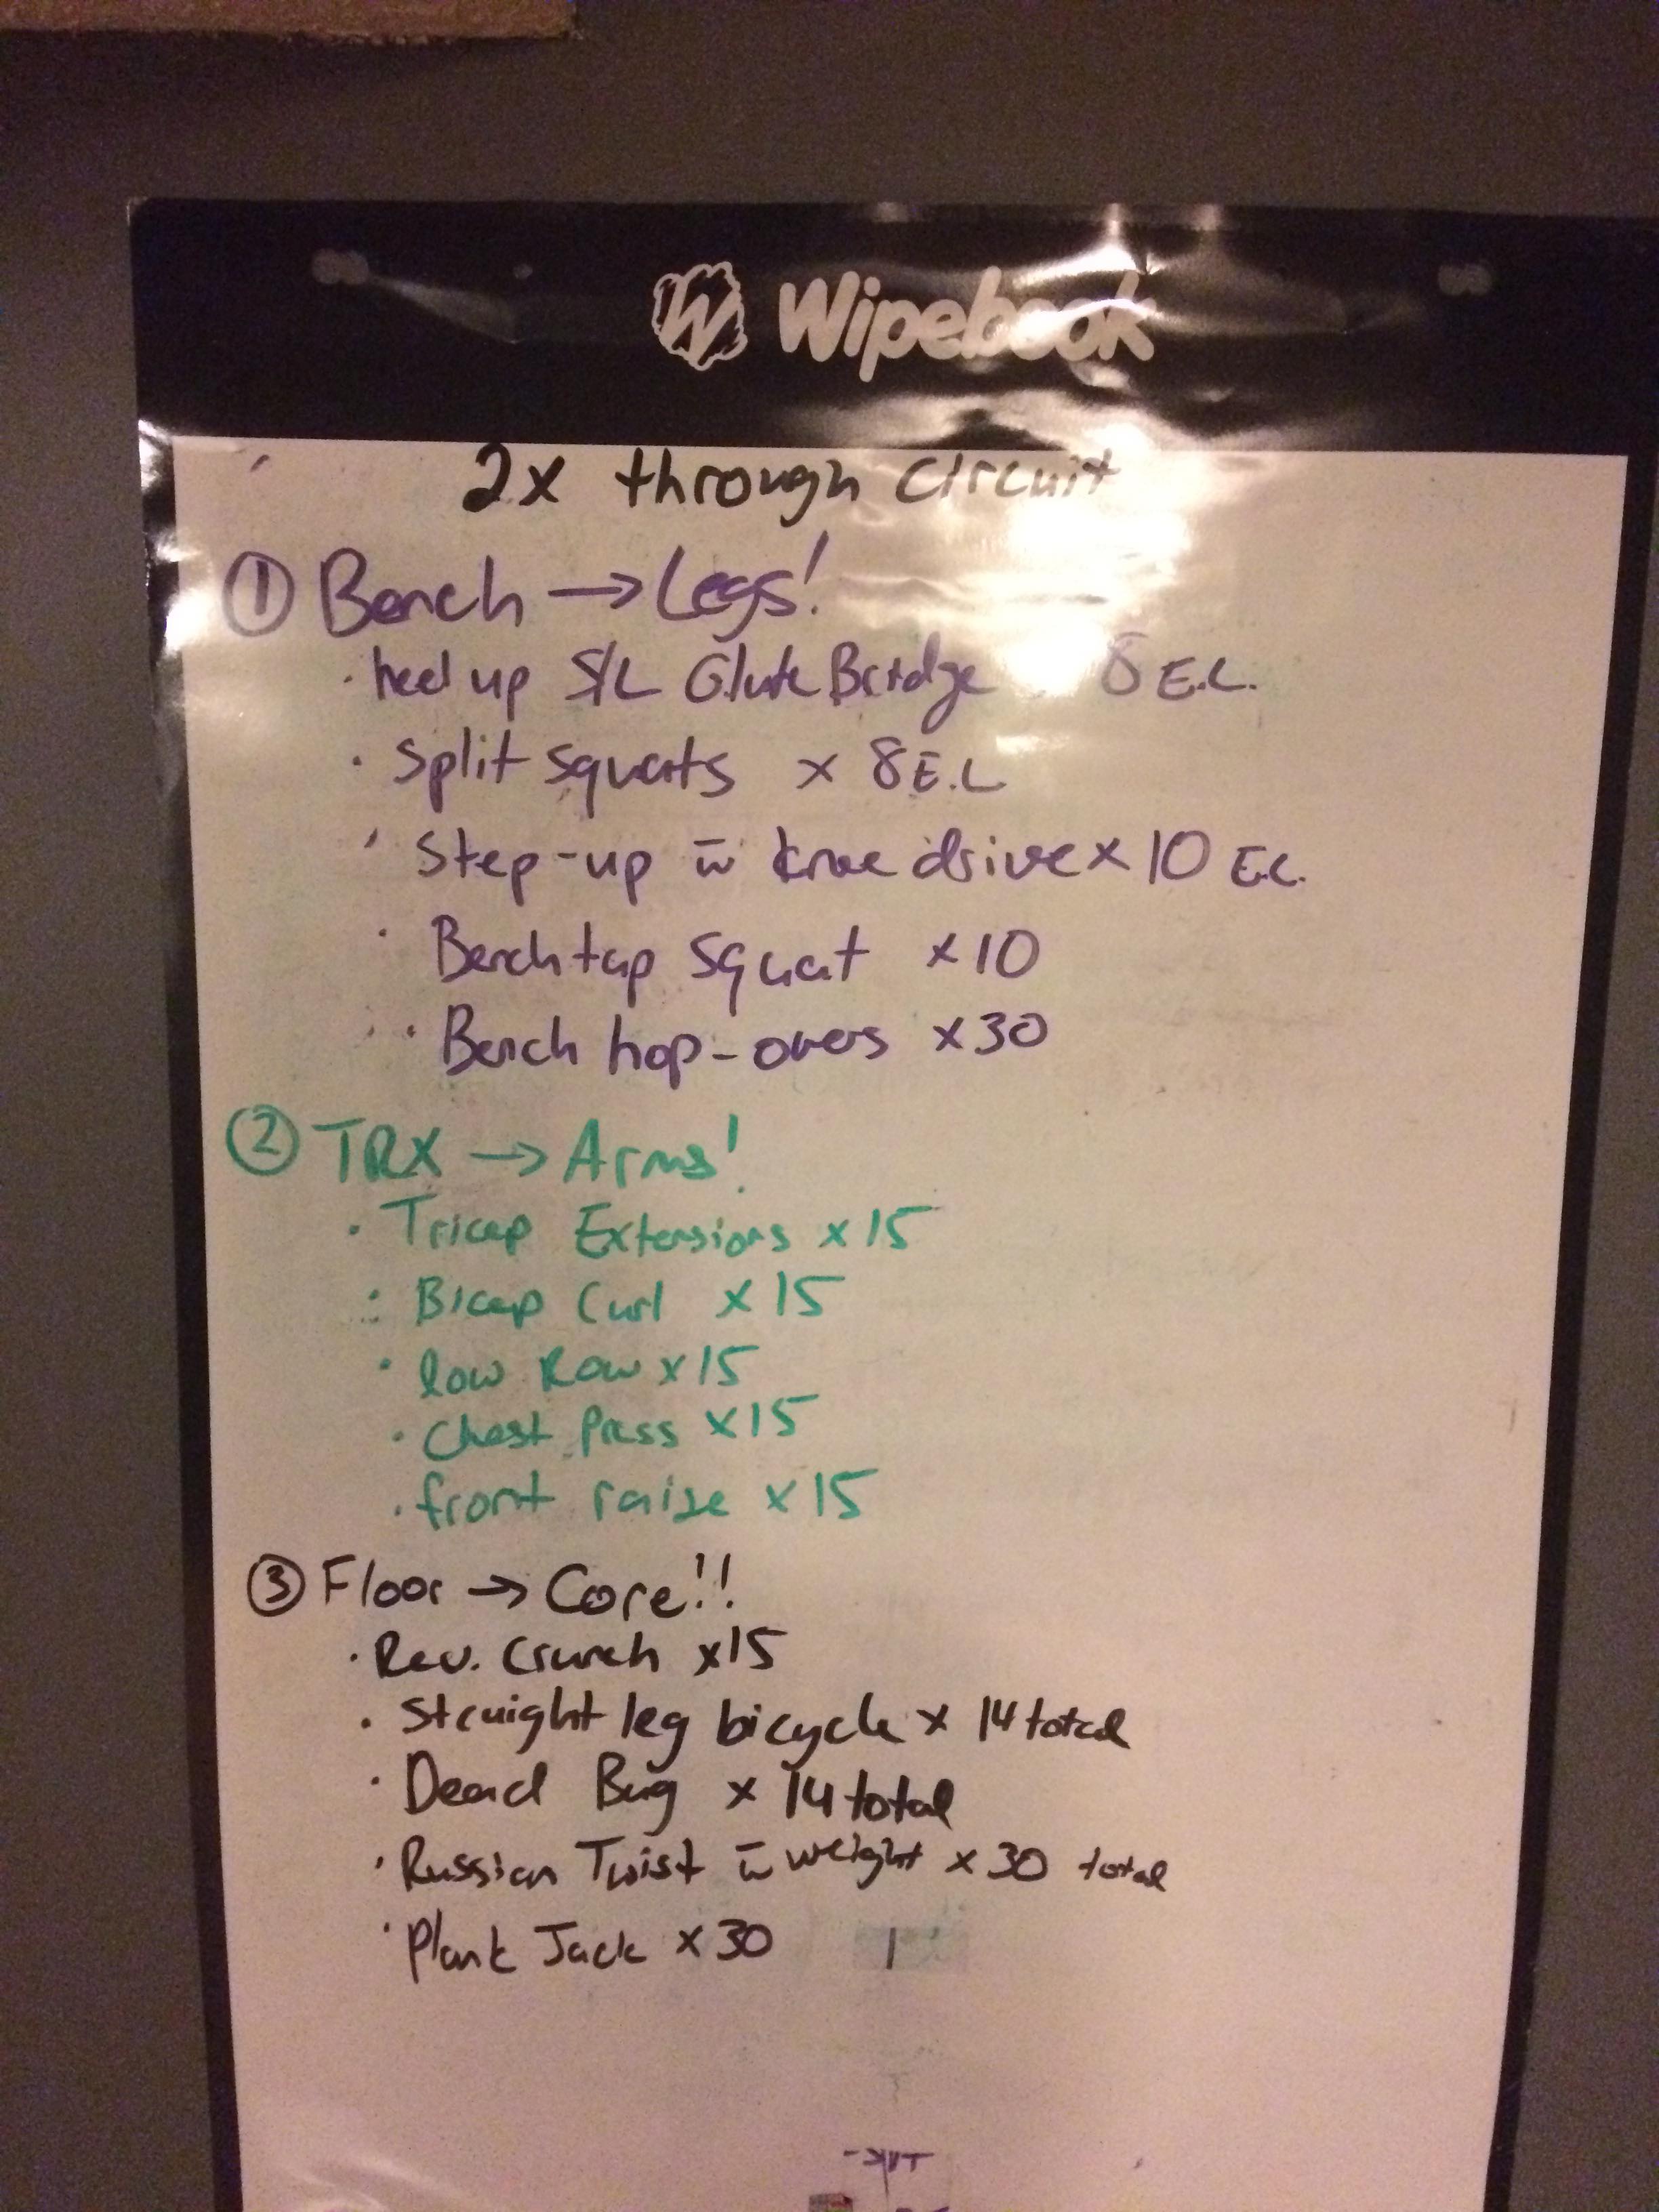 Wipebook
2x through circuit
① Bench → Legs!
· heel up S/L Glute Bridge 8 E.L.
· Split squats x 8 E.L
· Step-up w̄ knee drive x 10 E.L.
· Bench tap squat x10
· Bench hop-overs x30
② TRX → Arms!
· Tricep Extensions x15
· Bicep Curl x15
· low Row x15
· Chest Press x15
· front raise x15
③ Floor → Core!!
· Rev. Crunch x15
· Straight leg bicycle x 14 total
· Dead Bug x 14 total
· Russian Twist w̄ weight x30 total
· Plank Jack x30